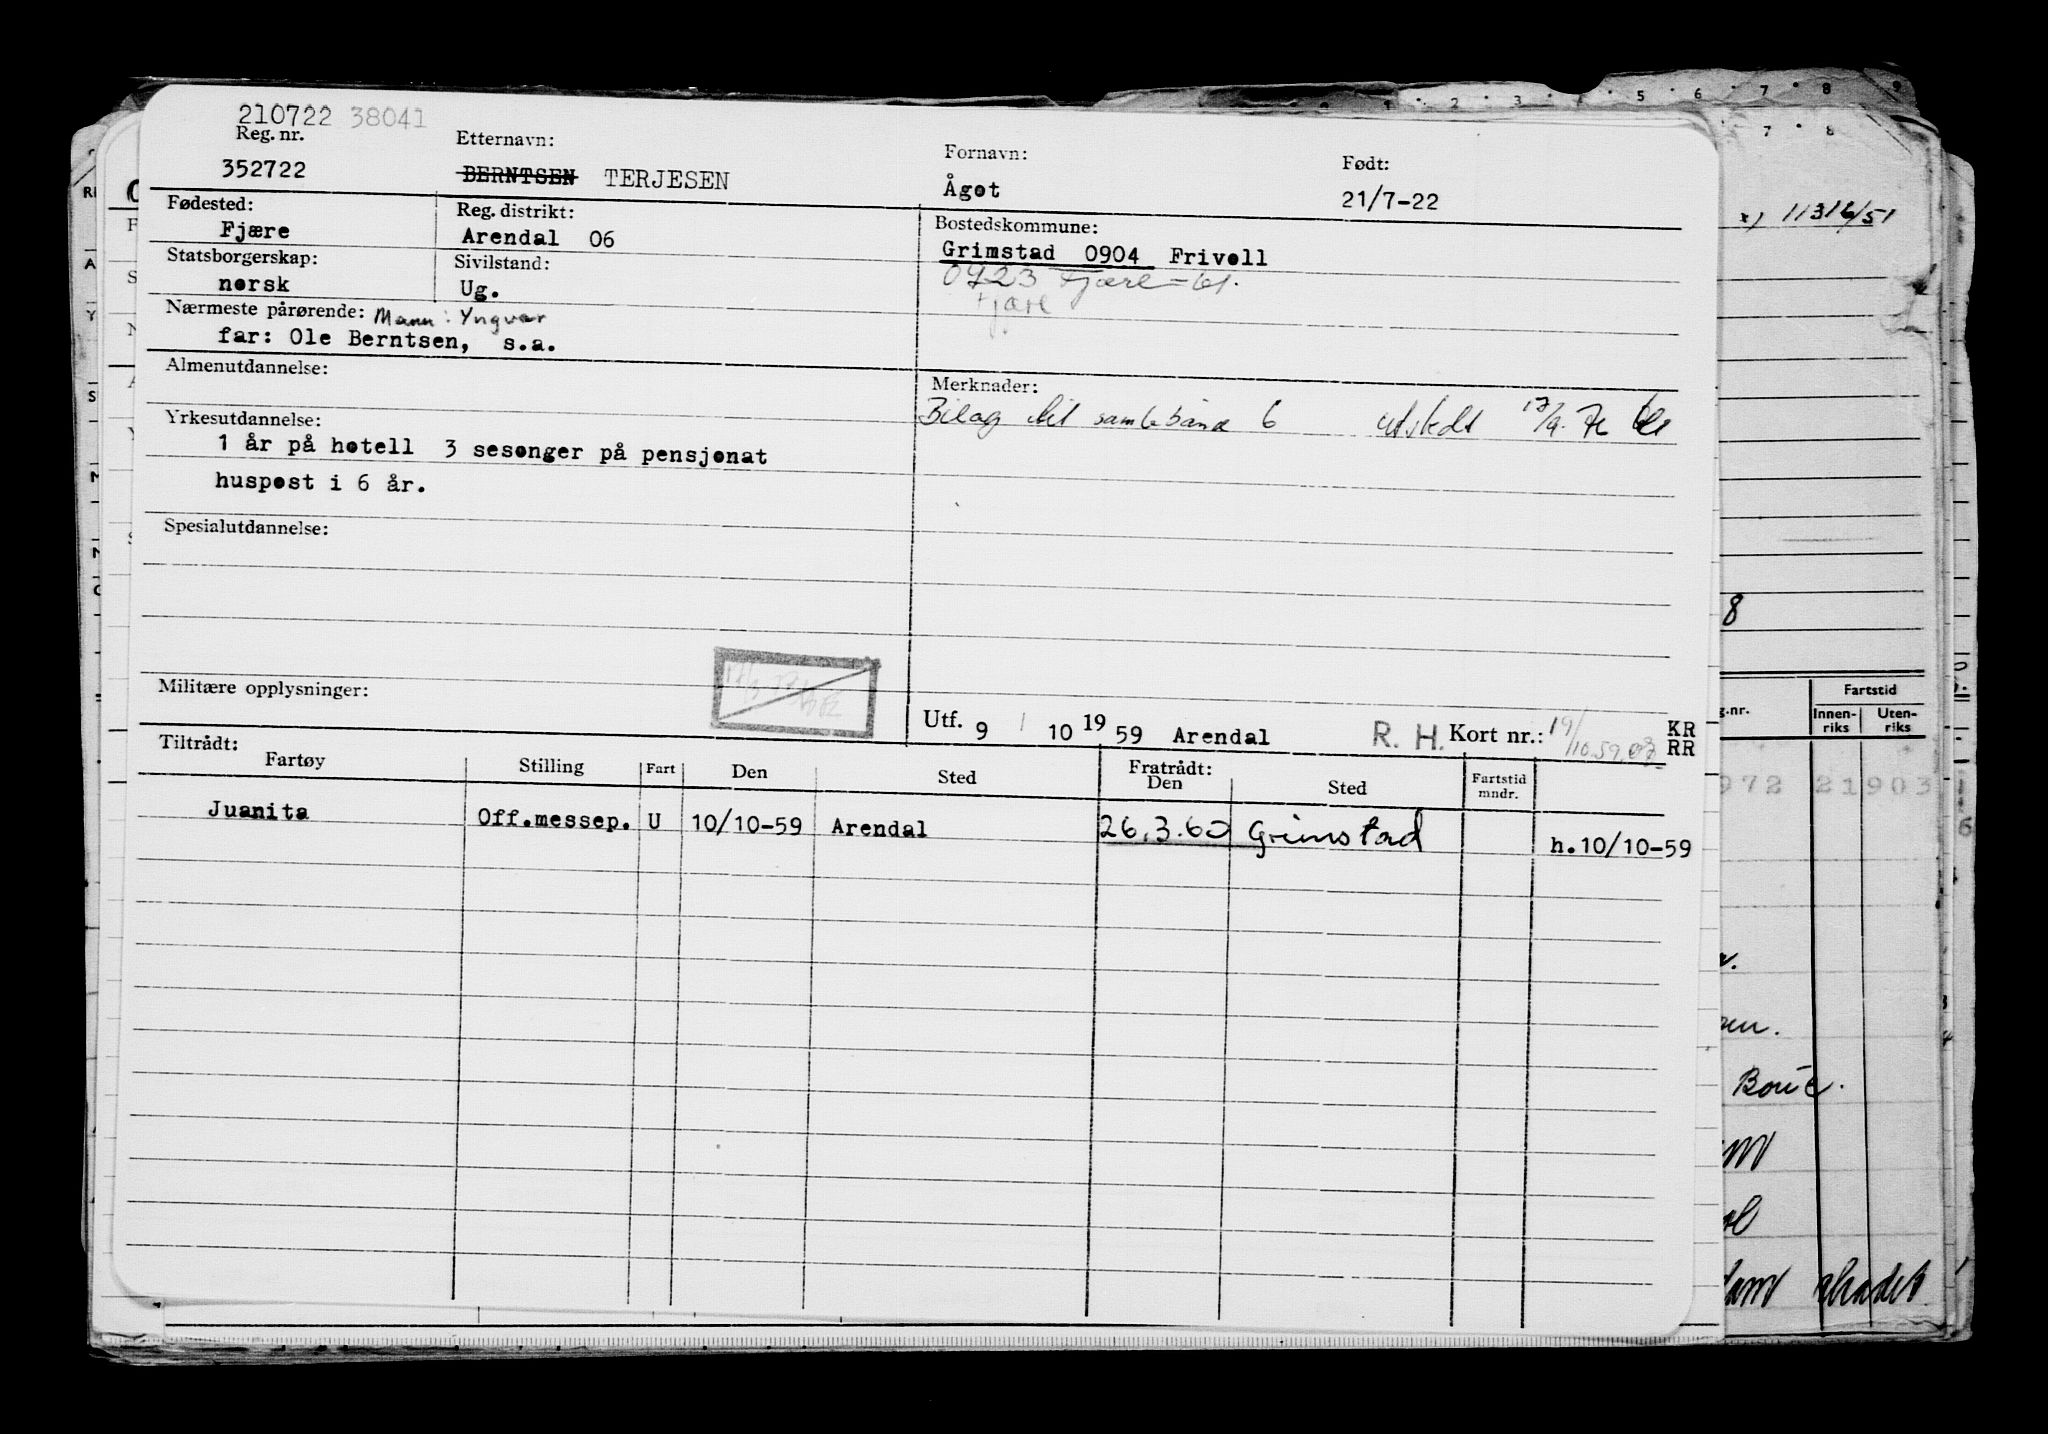 210722 38041
Reg. nr. Etternavn: Fornavn: Født:
352722 BERNTSEN TERJESEN Ågot 21/7-22
Fødested: Reg. distrikt: Bostedskommune:
Fjære Arendal 06 Grimstad 0904 Frivoll
Statsborgerskap: Sivilstand: 0923 Fjære
norsk Ug. Fjære
Nærmeste pårørende: Mann: Yngvar
far: Ole Berntsen, s.a.
Almenutdannelse: Merknader:
Bilag til samlebånd 6 utstedt 17/9. 76
Yrkesutdannelse:
1 år på hotell 3 sesonger på pensjonat
huspost i 6 år.
Spesialutdannelse:
Militære opplysninger:
Utf. 9 / 10 1959 Arendal R. H. Kort nr.: 19/10.59 KR
RR
Tiltrådt: Fratrådt:
Fartøy Stilling Fart Den Sted Den Sted Fartstid mndr.
Juanita Off.messep. U 10/10-59 Arendal 26.3.60 Grimstad h.10/10-59
x) 11316/51
8
g.nr. Fartstid
Innen-riks Uten-riks
972 21903